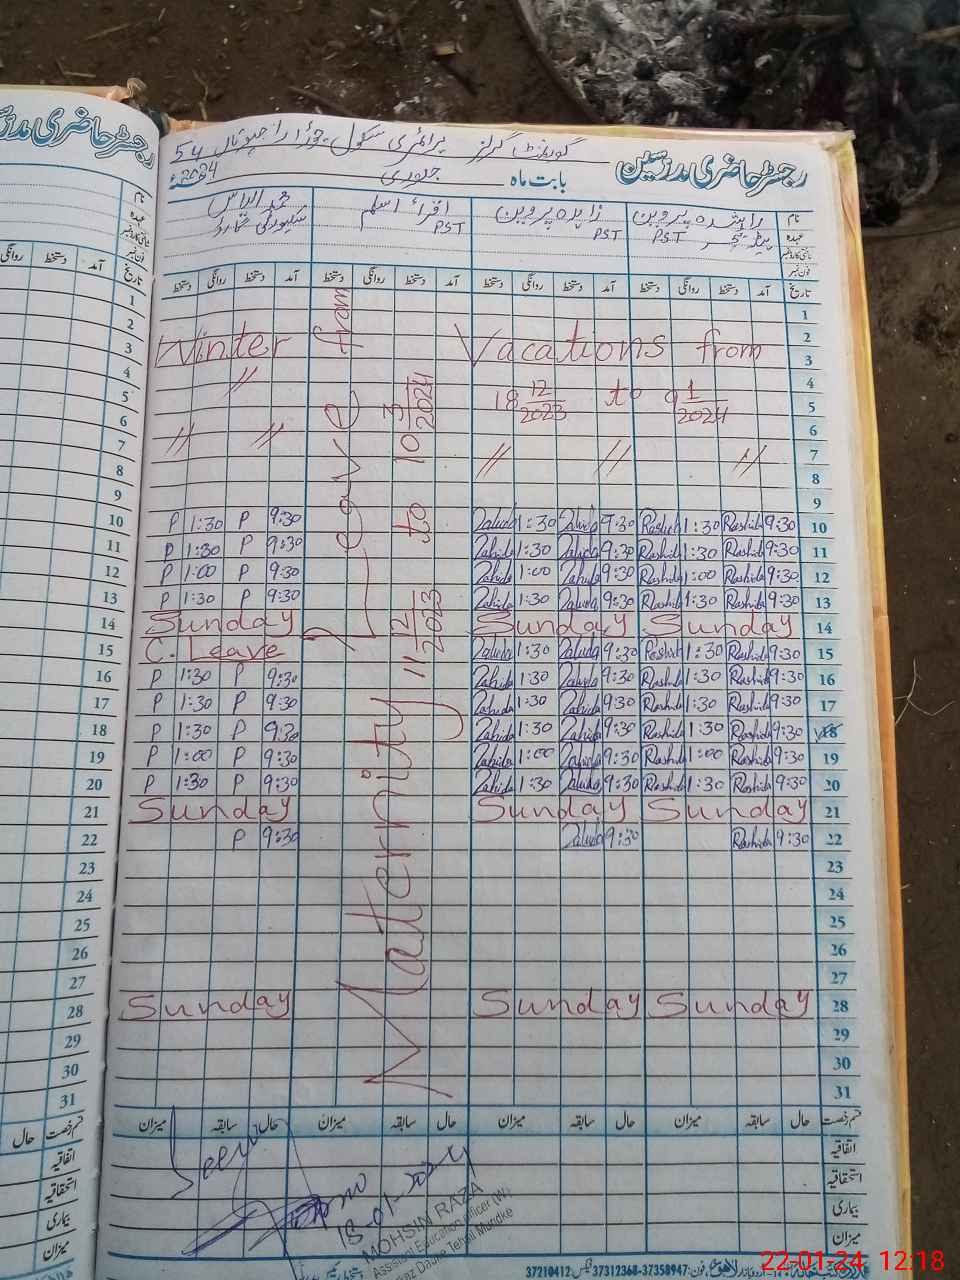 رجسٹر حاضری مدرسین
گورنمنٹ گرلز پرائمری سکول
رجسٹر حاضری مدرسین
بابت ماہ جنوری 2024ء
نام راشدہ پروین زاہدہ پروین اقراء اسلم
عہدہ PST PST PST
فون نمبر
تاریخ آمد دستخط روانگی دستخط آمد دستخط روانگی دستخط آمد دستخط روانگی دستخط آمد دستخط روانگی دستخط
آمد دستخط روانگی
1
2
Winter Vacations from
3
4
18 12/2023 to 9 1/2024
5
6
7
8
9
Maternity Leave from
11 12/2023 to 10 3/2024
P 1:30 P 9:30 Zahida 1:30 Zahida 9:30 Rashida 1:30 Rashida 9:30 10
P 1:30 P 9:30 Zahida 1:30 Zahida 9:30 Rashida 1:30 Rashida 9:30 11
P 1:00 P 9:30 Zahida 1:00 Zahida 9:30 Rashida 1:00 Rashida 9:30 12
P 1:30 P 9:30 Zahida 1:30 Zahida 9:30 Rashida 1:30 Rashida 9:30 13
Sunday Sunday Sunday 14
C. Leave Zahida 1:30 Zahida 9:30 Rashida 1:30 Rashida 9:30 15
P 1:30 P 9:30 Zahida 1:30 Zahida 9:30 Rashida 1:30 Rashida 9:30 16
P 1:30 P 9:30 Zahida 1:30 Zahida 9:30 Rashida 1:30 Rashida 9:30 17
P 1:30 P 9:30 Zahida 1:30 Zahida 9:30 Rashida 1:30 Rashida 9:30 18
P 1:00 P 9:30 Zahida 1:00 Zahida 9:30 Rashida 1:00 Rashida 9:30 19
P 1:30 P 9:30 Zahida 1:30 Zahida 9:30 Rashida 1:30 Rashida 9:30 20
Sunday Sunday Sunday 21
P 9:30 Zahida 9:30 Rashida 9:30 22
23
24
25
26
27
Sunday Sunday Sunday 28
29
30
31
قسم رخصت حال سابقہ میزان حال سابقہ میزان حال سابقہ میزان
اتفاقیہ
استحقاقیہ
بیماری
میزان
Seen
18-01-2024
MOHSIN RAZA
Assistant Education officer (W)
Tehsil Muridke
فون: 37358947-37312368 فیکس: 37210412
22.01.24 12:18